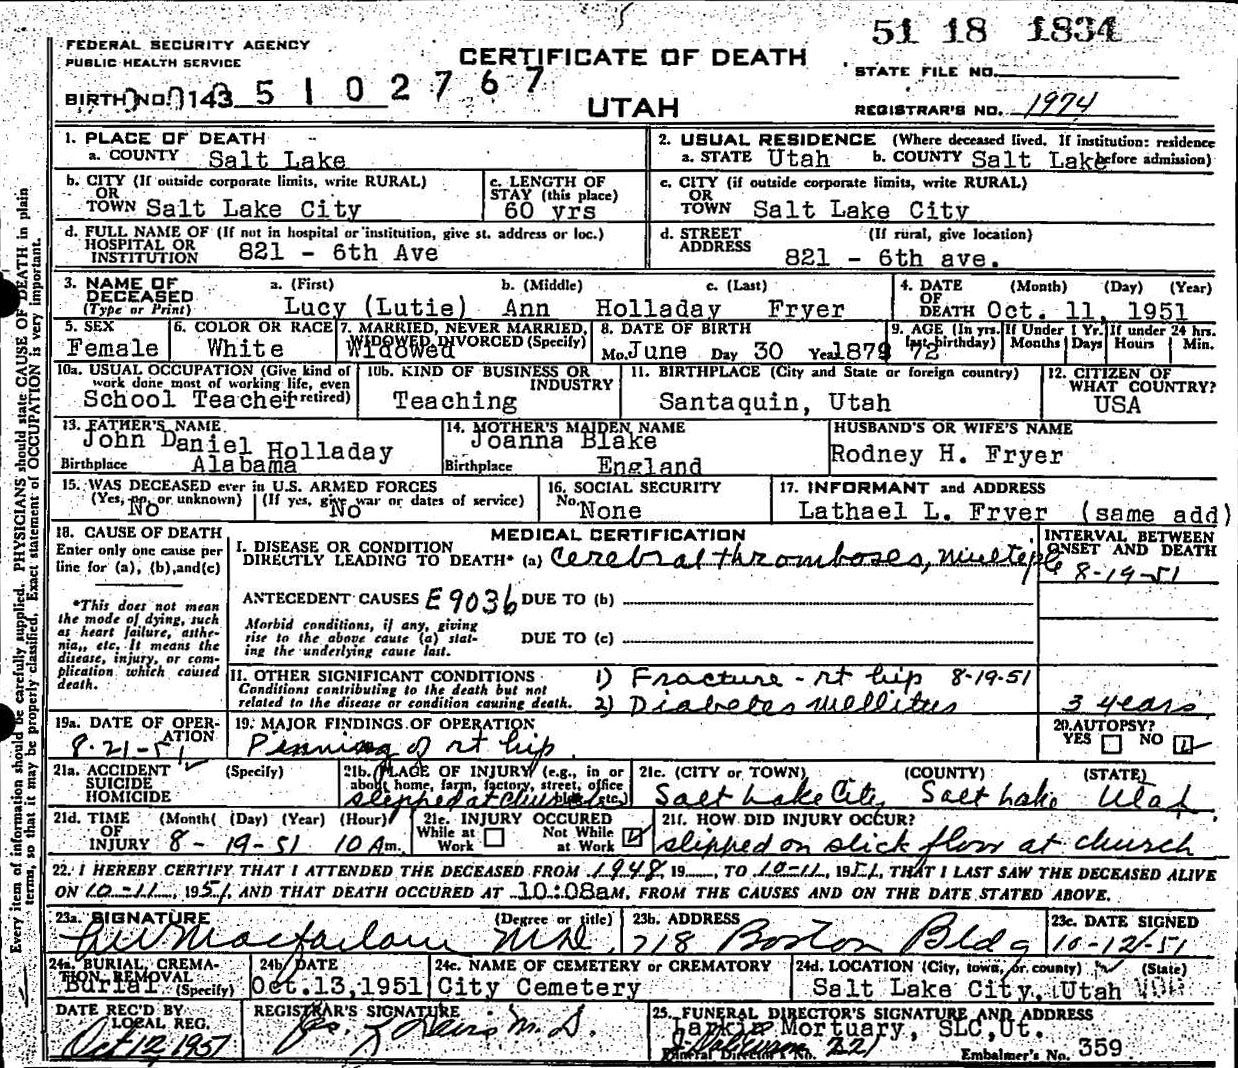 51 18 1834
FEDERAL SECURITY AGENCY
PUBLIC HEALTH SERVICE
CERTIFICATE OF DEATH
STATE FILE NO.
BIRTH NO. 143 5 1 0 2 7 6 7
UTAH
REGISTRAR'S NO. 1974
1. PLACE OF DEATH
a. COUNTY Salt Lake
2. USUAL RESIDENCE (Where deceased lived. If institution: residence before admission)
a. STATE Utah b. COUNTY Salt Lake
b. CITY (If outside corporate limits, write RURAL)
OR
TOWN Salt Lake City
c. LENGTH OF STAY (this place)
60 yrs
c. CITY (if outside corporate limits, write RURAL)
OR
TOWN Salt Lake City
d. FULL NAME OF (If not in hospital or institution, give st. address or loc.)
HOSPITAL OR
INSTITUTION 821 - 6th Ave
d. STREET ADDRESS (If rural, give location)
821 - 6th ave.
3. NAME OF DECEASED (Type or Print)
a. (First) b. (Middle) c. (Last)
Lucy (Lutie) Ann Holladay Fryer
4. DATE OF DEATH (Month) (Day) (Year)
Oct. 11, 1951
5. SEX
Female
6. COLOR OR RACE
White
7. MARRIED, NEVER MARRIED, WIDOWED, DIVORCED (Specify)
Widowed
8. DATE OF BIRTH
Mo. June Day 30 Year 1879
9. AGE (In yrs. last birthday)
72
If Under 1 Yr. Months Days
If under 24 hrs. Hours Min.
10a. USUAL OCCUPATION (Give kind of work done most of working life, even if retired)
School Teacher
10b. KIND OF BUSINESS OR INDUSTRY
Teaching
11. BIRTHPLACE (City and State or foreign country)
Santaquin, Utah
12. CITIZEN OF WHAT COUNTRY?
USA
13. FATHER'S NAME
John Daniel Holladay
Birthplace Alabama
14. MOTHER'S MAIDEN NAME
Joanna Blake
Birthplace England
HUSBAND'S OR WIFE'S NAME
Rodney H. Fryer
15. WAS DECEASED ever in U.S. ARMED FORCES
(Yes, no, or unknown) (If yes, give war or dates of service)
No No
16. SOCIAL SECURITY No.
None
17. INFORMANT and ADDRESS
Lathael L. Fryer (same add)
18. CAUSE OF DEATH
Enter only one cause per line for (a), (b), and (c)
*This does not mean the mode of dying, such as heart failure, asthenia, etc. It means the disease, injury, or complication which caused death.
MEDICAL CERTIFICATION
INTERVAL BETWEEN ONSET AND DEATH
I. DISEASE OR CONDITION DIRECTLY LEADING TO DEATH* (a) Cerebral thromboses, multiple
8-19-51
ANTECEDENT CAUSES E9036 DUE TO (b)
Morbid conditions, if any, giving rise to the above cause (a) stating the underlying cause last.
DUE TO (c)
II. OTHER SIGNIFICANT CONDITIONS
Conditions contributing to the death but not related to the disease or condition causing death.
1) Fracture - rt hip 8-19-51
2) Diabetes mellitus 3 years
19a. DATE OF OPERATION
8-21-51
19. MAJOR FINDINGS OF OPERATION
Pinning of rt hip
20. AUTOPSY?
YES NO
21a. ACCIDENT (Specify)
SUICIDE
HOMICIDE
21b. PLACE OF INJURY (e.g., in or about home, farm, factory, street, office bldg., etc.)
slipped at church
21c. (CITY or TOWN) (COUNTY) (STATE)
Salt Lake City Salt Lake Utah
21d. TIME OF INJURY (Month) (Day) (Year) (Hour)
8-19-51 10 Am.
21e. INJURY OCCURED
While at Work Not While at Work
21f. HOW DID INJURY OCCUR?
slipped on slick floor at church
22. I HEREBY CERTIFY THAT I ATTENDED THE DECEASED FROM 1948, 19__, TO 10-11, 1951, THAT I LAST SAW THE DECEASED ALIVE
ON 10-11, 1951, AND THAT DEATH OCCURED AT 10:08am, FROM THE CAUSES AND ON THE DATE STATED ABOVE.
23a. SIGNATURE (Degree or title)
Macfarlane M.D.
23b. ADDRESS
718 Boston Bldg
23c. DATE SIGNED
10-12-51
24a. BURIAL, CREMATION, REMOVAL (Specify)
Burial
24b. DATE
Oct. 13, 1951
24c. NAME OF CEMETERY or CREMATORY
City Cemetery
24d. LOCATION (City, town, or county) (State)
Salt Lake City, Utah
DATE REC'D BY LOCAL REG.
Oct 12, 1951
REGISTRAR'S SIGNATURE
M.D.
25. FUNERAL DIRECTOR'S SIGNATURE AND ADDRESS
Larkin Mortuary, SLC, Ut.
Funeral Director's No. 221
Embalmer's No. 359
Every item of information should be carefully supplied. PHYSICIANS should state CAUSE OF DEATH in plain
terms, so that it may be properly classified. Exact statement of OCCUPATION is very important.